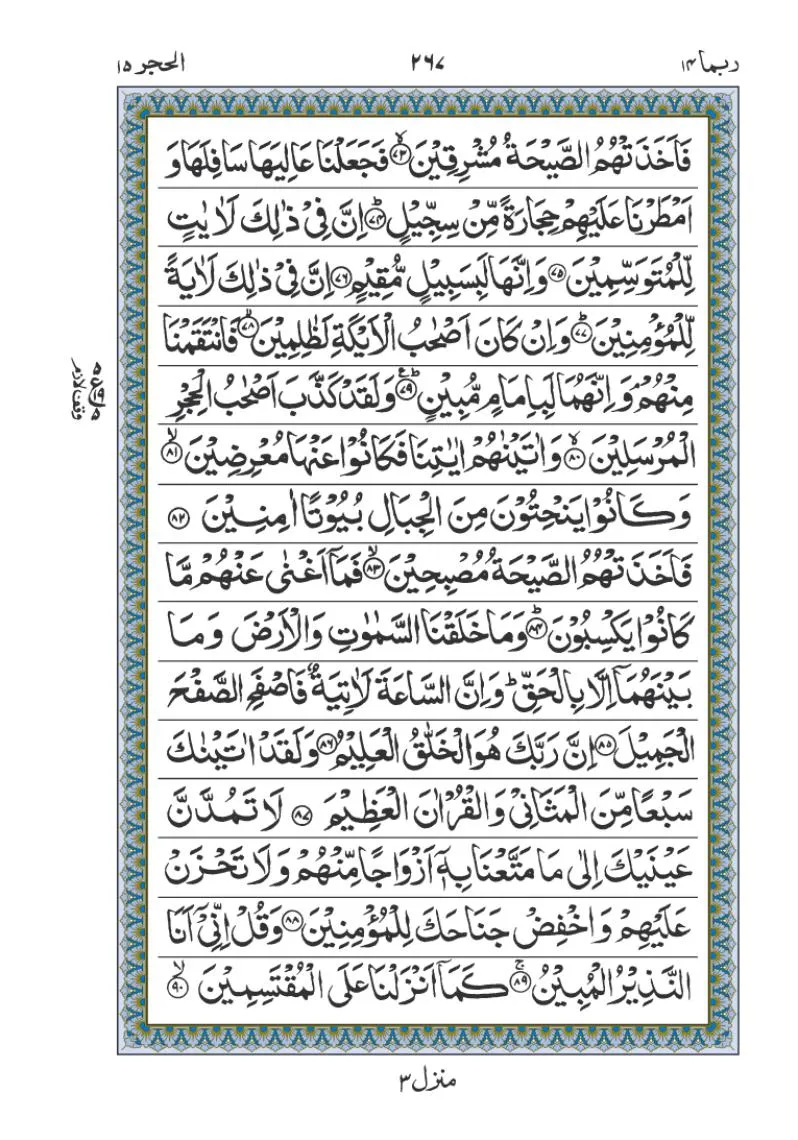 ربما ۱۴
۲۶۷
الحجر ۱۵
فَاَخَذَتْهُمُ الصَّيْحَةُ مُشْرِقِيْنَ ۙ‏﴿۷۳﴾ فَجَعَلْنَا عَالِيَهَا سَافِلَهَا وَ
اَمْطَرْنَا عَلَيْهِمْ حِجَارَةً مِّنْ سِجِّيْلٍ ؕ﴿۷۴﴾ اِنَّ فِيْ ذٰلِكَ لَاٰيٰتٍ
لِّلْمُتَوَسِّمِيْنَ ﴿۷۵﴾ وَاِنَّهَا لَبِسَبِيْلٍ مُّقِيْمٍ ﴿۷۶﴾ اِنَّ فِيْ ذٰلِكَ لَاٰيَةً
لِّلْمُؤْمِنِيْنَ ؕ﴿۷۷﴾ وَاِنْ كَانَ اَصْحٰبُ الْاَيْكَةِ لَظٰلِمِيْنَ ۙ﴿۷۸﴾ فَانْتَقَمْنَا
مِنْهُمْ ۘ وَاِنَّهُمَا لَبِاِمَامٍ مُّبِيْنٍ ؕ﴿۷۹﴾ۧ وَلَقَدْ كَذَّبَ اَصْحٰبُ الْحِجْرِ
الْمُرْسَلِيْنَ ۙ﴿۸۰﴾ وَاٰتَيْنٰهُمْ اٰيٰتِنَا فَكَانُوْا عَنْهَا مُعْرِضِيْنَ ۙ﴿۸۱﴾
وَكَانُوْا يَنْحِتُوْنَ مِنَ الْجِبَالِ بُيُوْتًا اٰمِنِيْنَ ﴿۸۲﴾
فَاَخَذَتْهُمُ الصَّيْحَةُ مُصْبِحِيْنَ ۙ﴿۸۳﴾ فَمَاۤ اَغْنٰى عَنْهُمْ مَّا
كَانُوْا يَكْسِبُوْنَ ؕ﴿۸۴﴾ وَمَا خَلَقْنَا السَّمٰوٰتِ وَالْاَرْضَ وَمَا
بَيْنَهُمَاۤ اِلَّا بِالْحَقِّ ؕ وَاِنَّ السَّاعَةَ لَاٰتِيَةٌ فَاصْفَحِ الصَّفْحَ
الْجَمِيْلَ ﴿۸۵﴾ اِنَّ رَبَّكَ هُوَ الْخَلّٰقُ الْعَلِيْمُ ﴿۸۶﴾ وَلَقَدْ اٰتَيْنٰكَ
سَبْعًا مِّنَ الْمَثَانِيْ وَالْقُرْاٰنَ الْعَظِيْمَ ﴿۸۷﴾ لَا تَمُدَّنَّ
عَيْنَيْكَ اِلٰى مَا مَتَّعْنَا بِهٖۤ اَزْوَاجًا مِّنْهُمْ وَلَا تَحْزَنْ
عَلَيْهِمْ وَاخْفِضْ جَنَاحَكَ لِلْمُؤْمِنِيْنَ ﴿۸۸﴾ وَقُلْ اِنِّيْۤ اَنَا
النَّذِيْرُ الْمُبِيْنُ ۚ﴿۸۹﴾ كَمَاۤ اَنْزَلْنَا عَلَى الْمُقْتَسِمِيْنَ ۙ﴿۹۰﴾
وقف لازم
منزل ۳